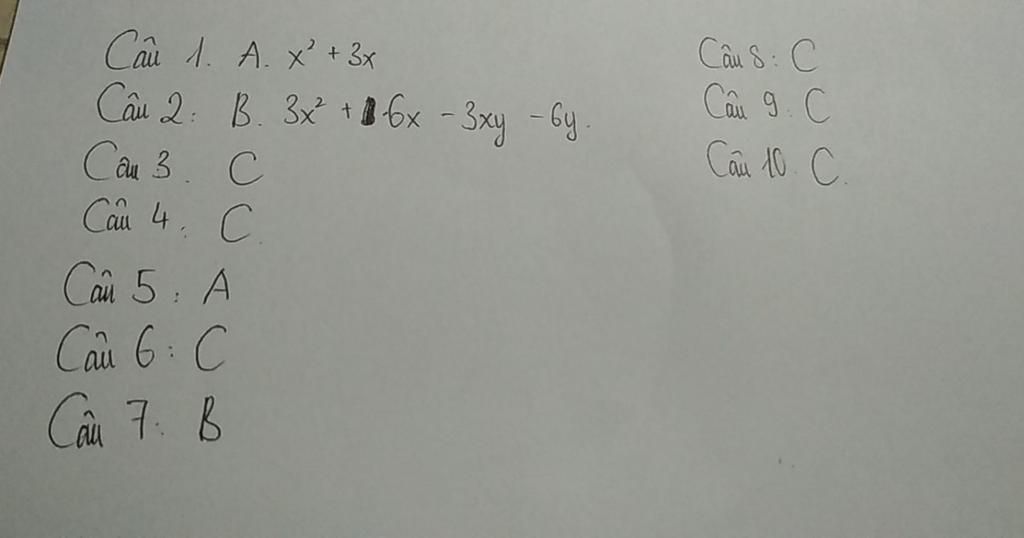 Câu 1. A. x² + 3x
Câu 2: B. 3x² + 6x - 3xy - 6y.
Câu 3. C
Câu 4: C.
Câu 5: A
Câu 6: C
Câu 7: B
Câu 8: C
Câu 9. C
Câu 10. C.